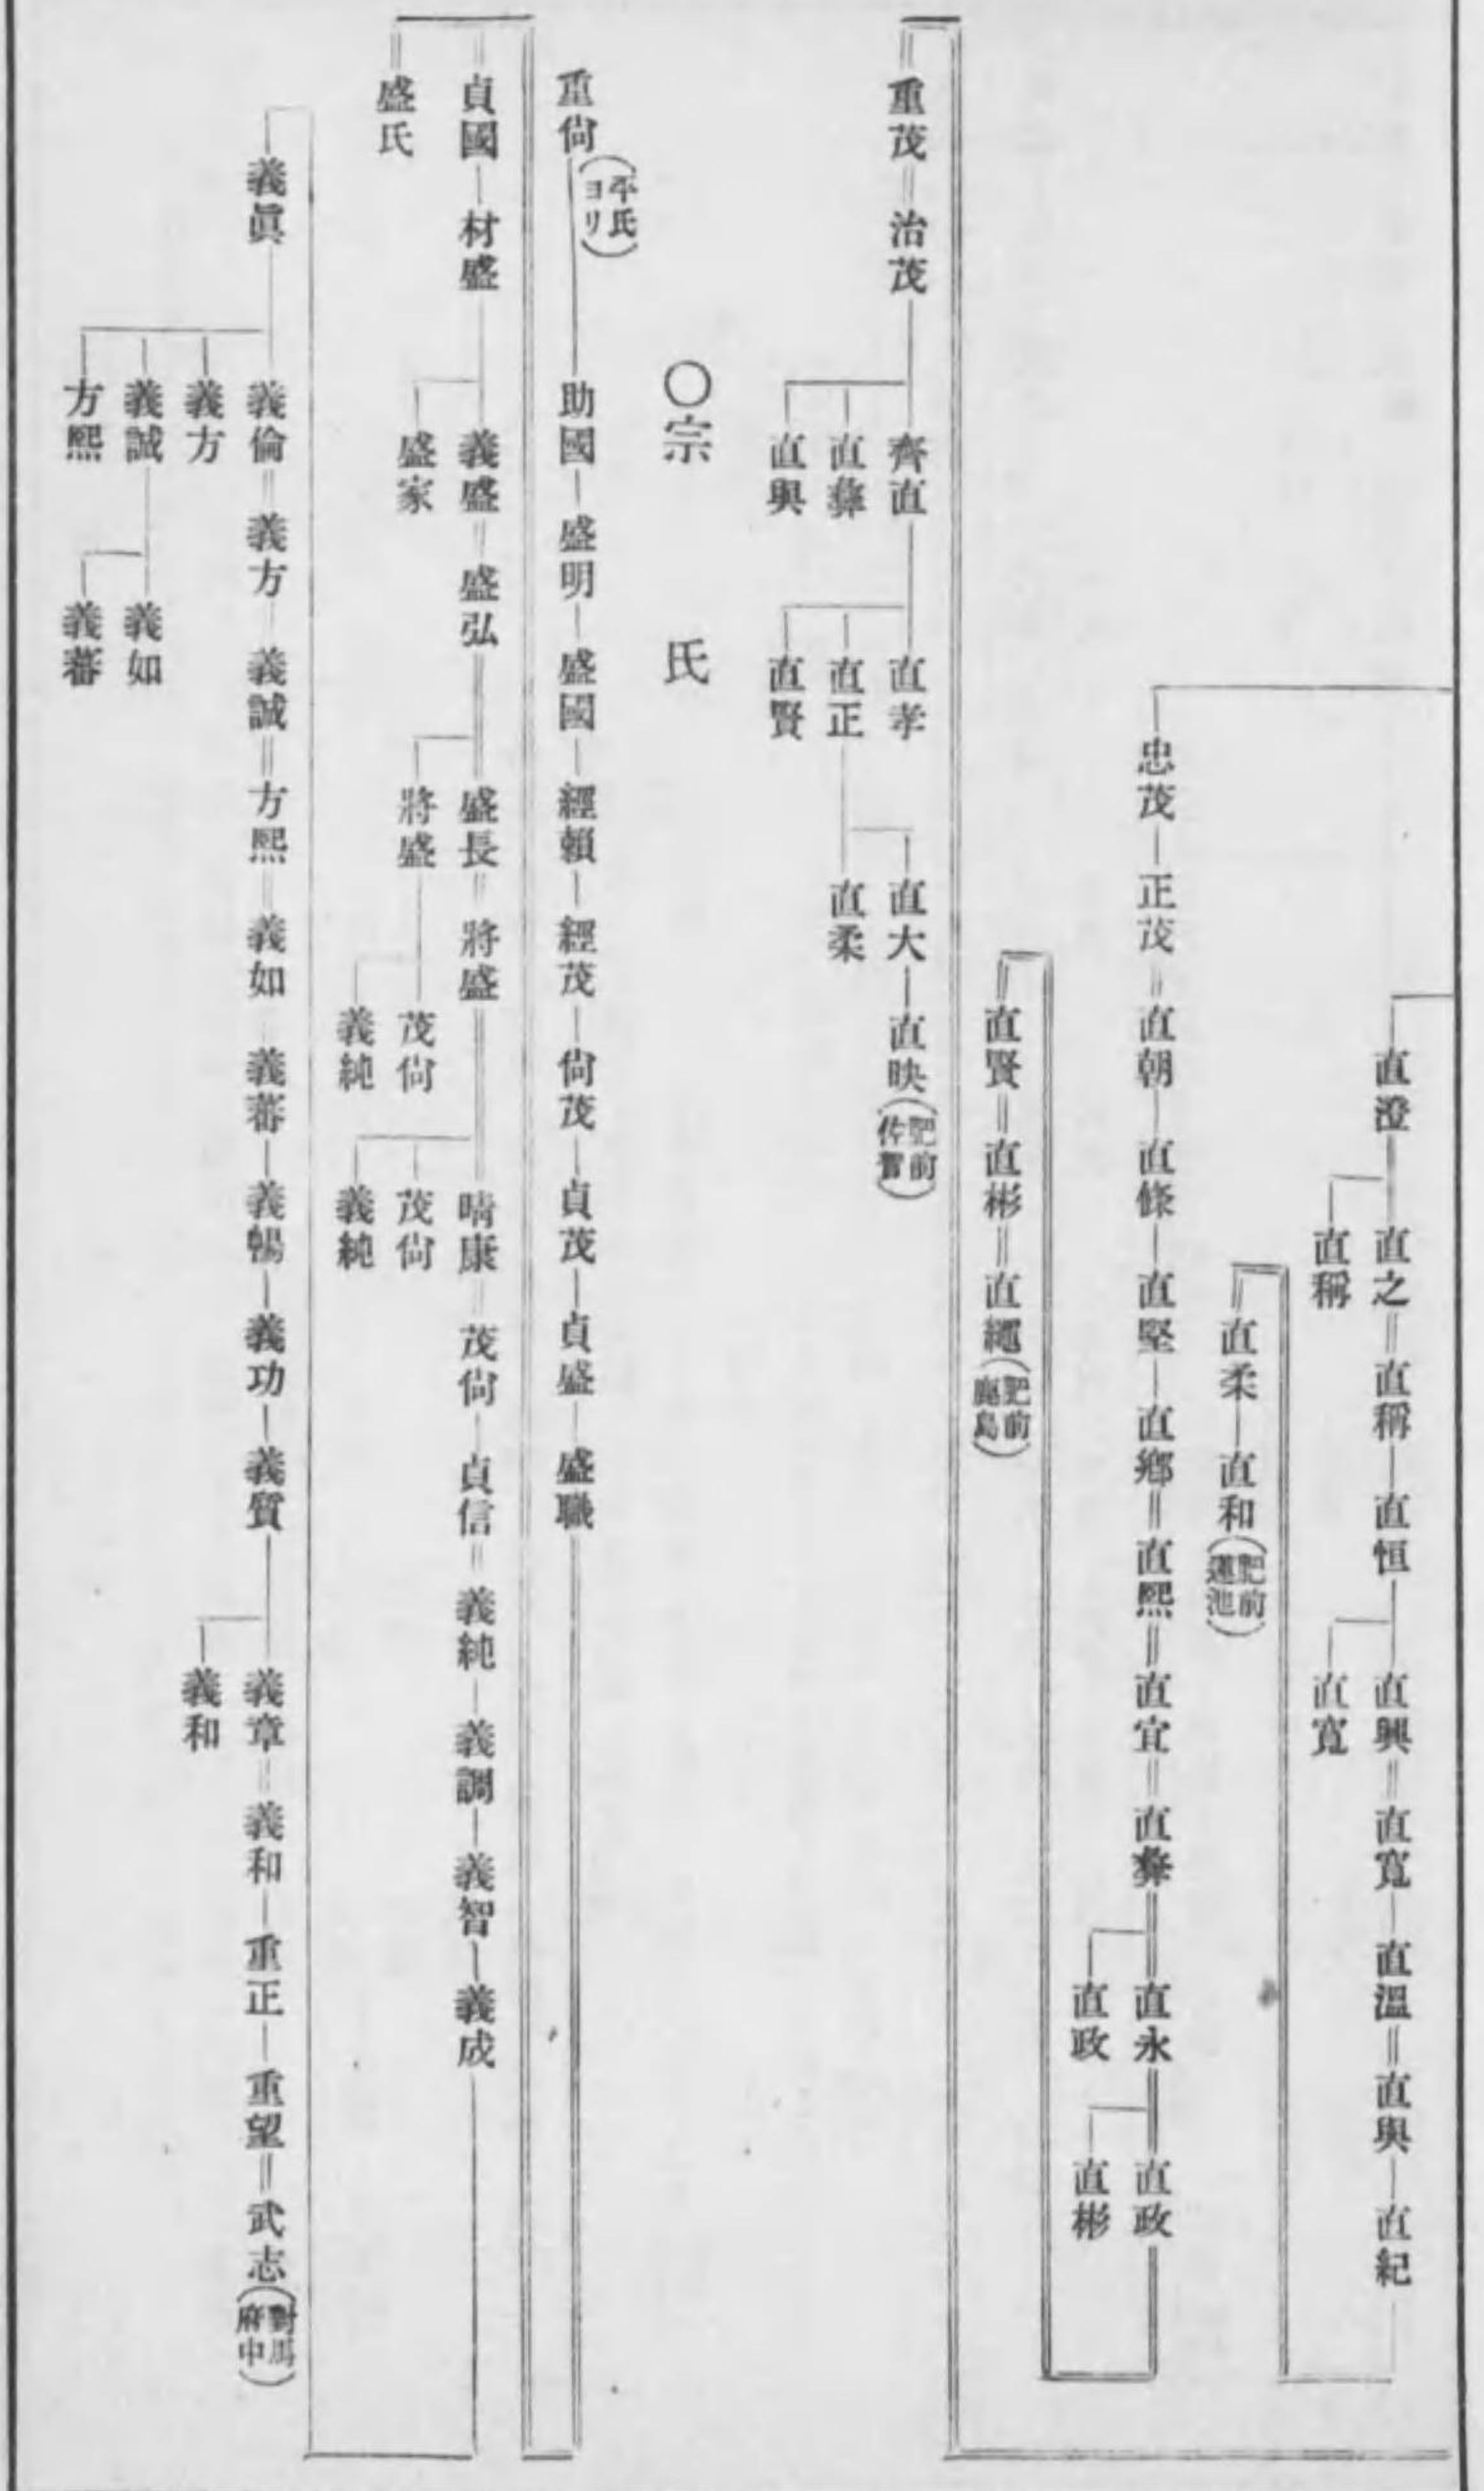 直澄 直之 直稱 直恒 直興 直寬 直溫 直與 直紀
直稱 直寬
直柔 直和(肥前蓮池)
忠茂 正茂 直朝 直條 直堅 直鄕 直熙 直宜 直彝 直永 直政
直政 直彬
直賢 直彬 直繩(肥前鹿島)
重茂 治茂 齊直 直孝 直大 直映(肥前佐賀)
直彝 直正 直柔
直與 直賢
〇宗氏
重尙(平氏ヨリ) 助國 盛明 盛國 經賴 經茂 尙茂 貞茂 貞盛 盛職
貞國 材盛 義盛 盛弘 盛長 將盛 晴康 茂尙 貞信 義純 義調 義智 義成
盛氏 盛家 將盛 茂尙 茂尙
義純 義純
義眞 義倫 義方 義誠 方熙 義如 義蕃 義暢 義功 義質 義章 義和 重正 重望 武志(對馬府中)
義方 義和
義誠 義如
方熙 義蕃